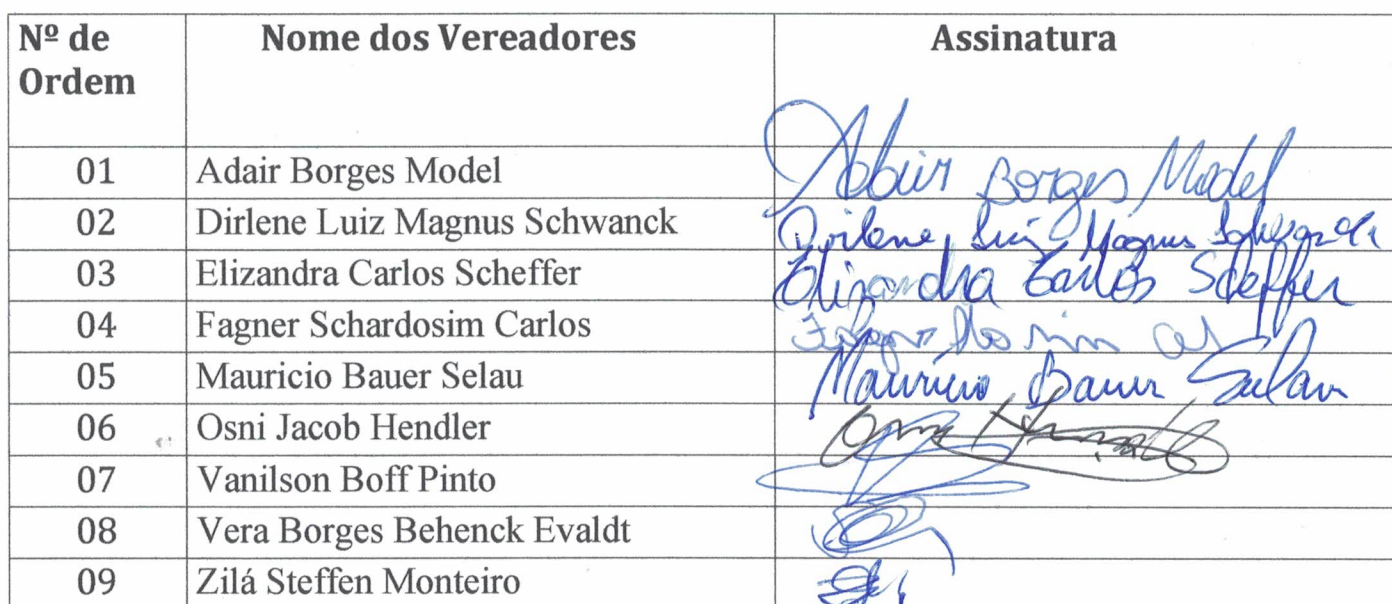 Nº de Ordem Nome dos Vereadores Assinatura
01 Adair Borges Model Adair Borges Model
02 Dirlene Luiz Magnus Schwanck Dirlene Luiz Magnus Schwanck
03 Elizandra Carlos Scheffer Elizandra Carlos Scheffer
04 Fagner Schardosim Carlos
05 Mauricio Bauer Selau Mauricio Bauer Selau
06 Osni Jacob Hendler
07 Vanilson Boff Pinto
08 Vera Borges Behenck Evaldt
09 Zilá Steffen Monteiro